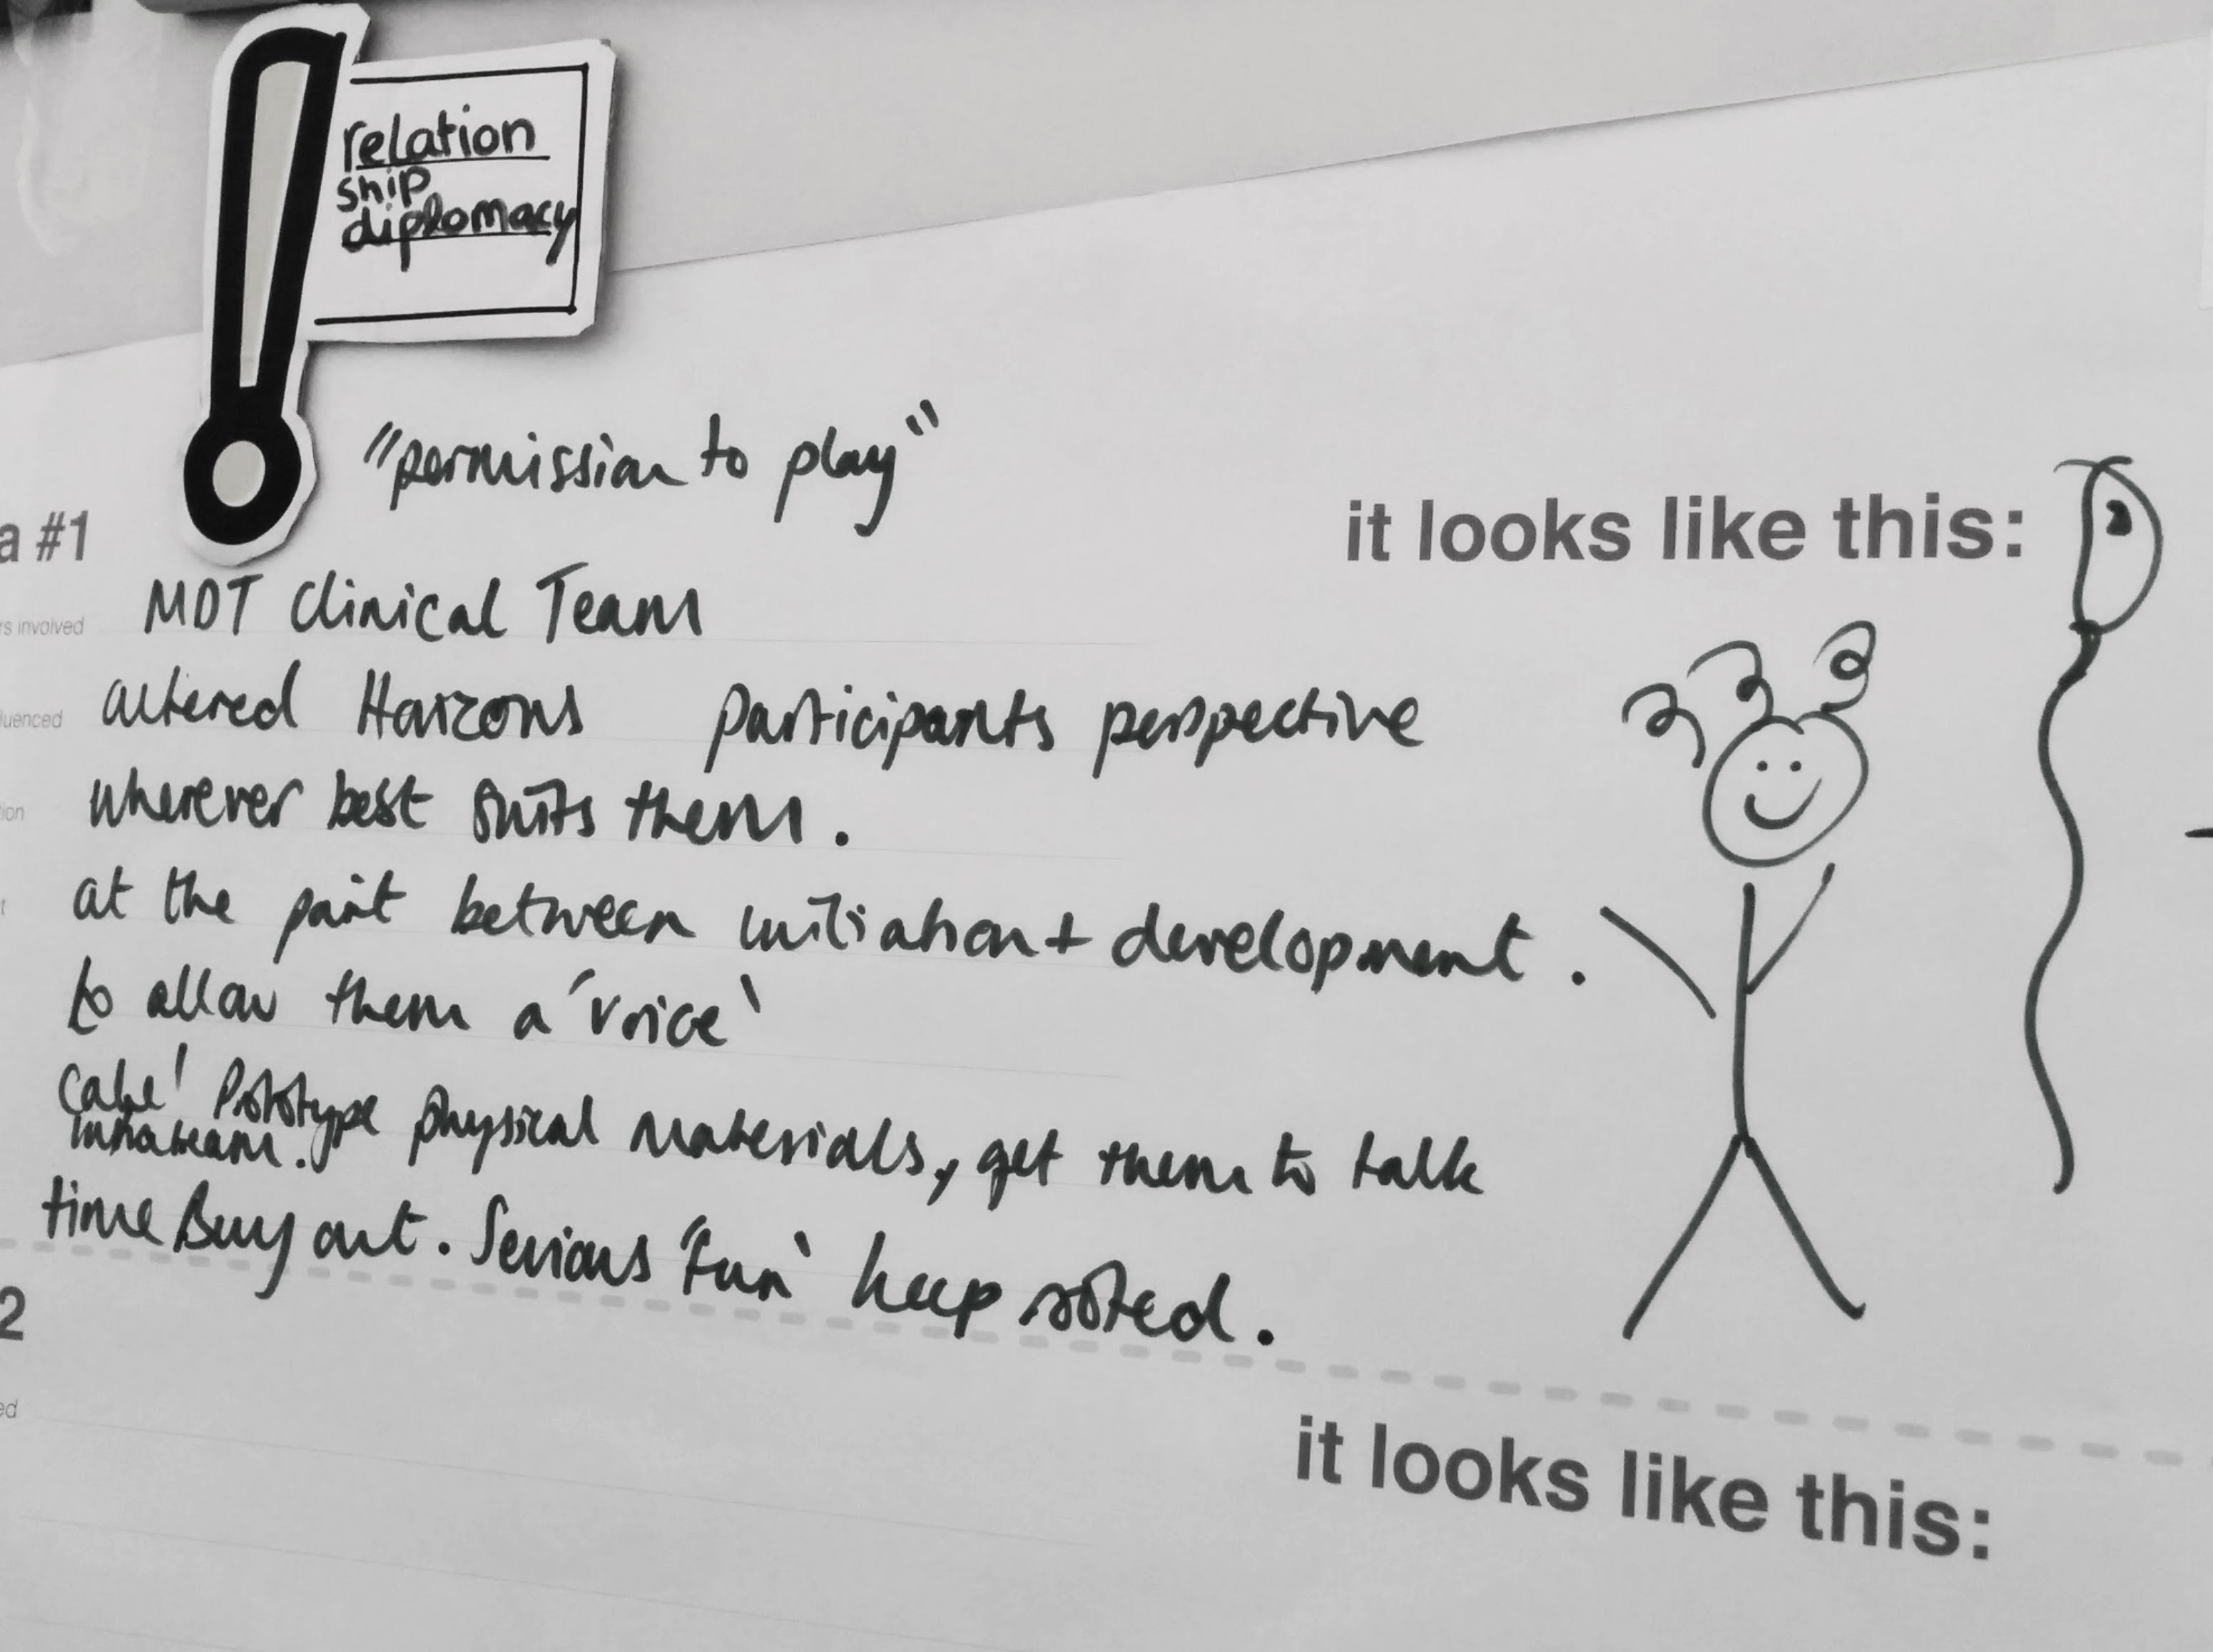 relation
ship
diplomacy
"permission to play"
a #1
it looks like this:
rs involved
MDT Clinical Team
luenced
altered Horizons participants perspective
tion
wherever best suits them.
at the point between initiation + development.
to allow them a 'voice'
Cake! Prototype physical materials, get them to talk
time Buy out. Serious 'fun' keep
2
ed
it looks like this: